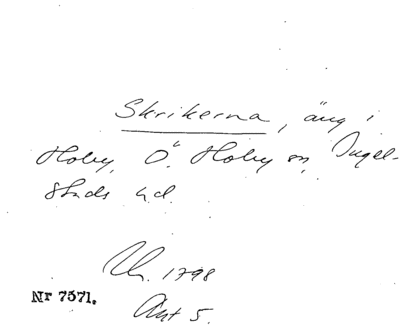 Skrikerna, äng i
Hoby, Ö. Hoby sn, Ingel-
stads hd.
1798
Akt 5.
Nr 7371.